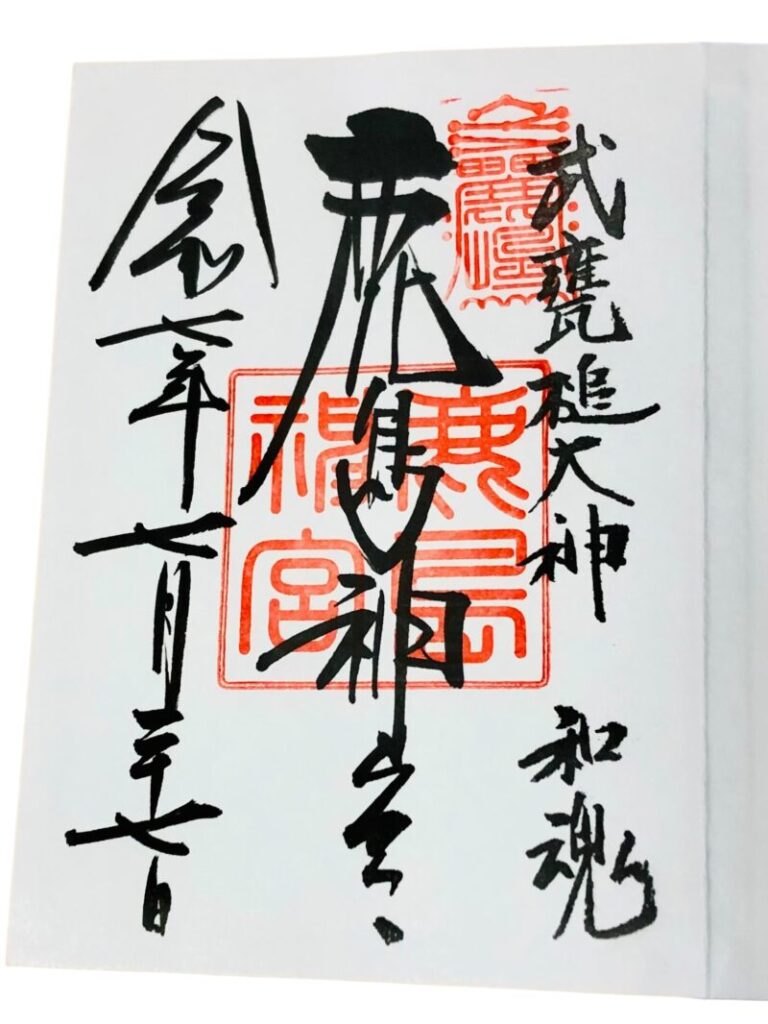 武甕槌大神 和魂
鹿島神宮
令和七年七月二十七日
鹿島神宮